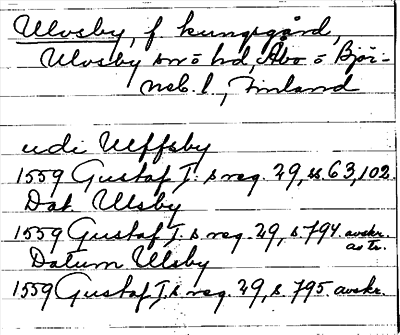 Ulvsby, f. kungsgård,
Ulvsby sn o hd, Åbo o Björ-
neb. l., Finland
udi Ulffsby
1559 Gustaf I:s reg. 29, ss. 63, 102.
Dat. Ulsby
1559 Gustaf I:s reg. 29, s. 794. avskr.
Datum Ulsby
1559 Gustaf I:s reg. 29, s. 795. avskr.